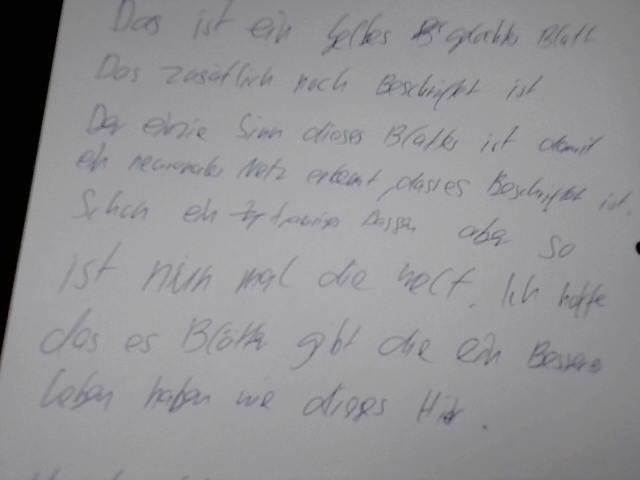 Das ist ein Blatt
Das zusätlich noch Beschriftet ist
Der einzie Sinn dieses Blattes ist damit
ein neuronales Netz erkennt, dass es Beschriftet ist.
Schon ein aber so
ist nun mal die welt. Ich hoffe
das es Blätter gibt die ein Besseres
leben haben wie dieses Hier.